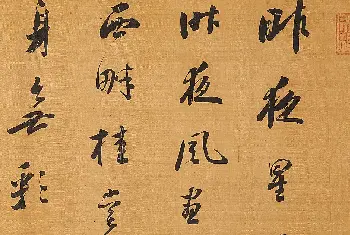 昨夜星
昨夜風畫
西畔桂堂
身無彩